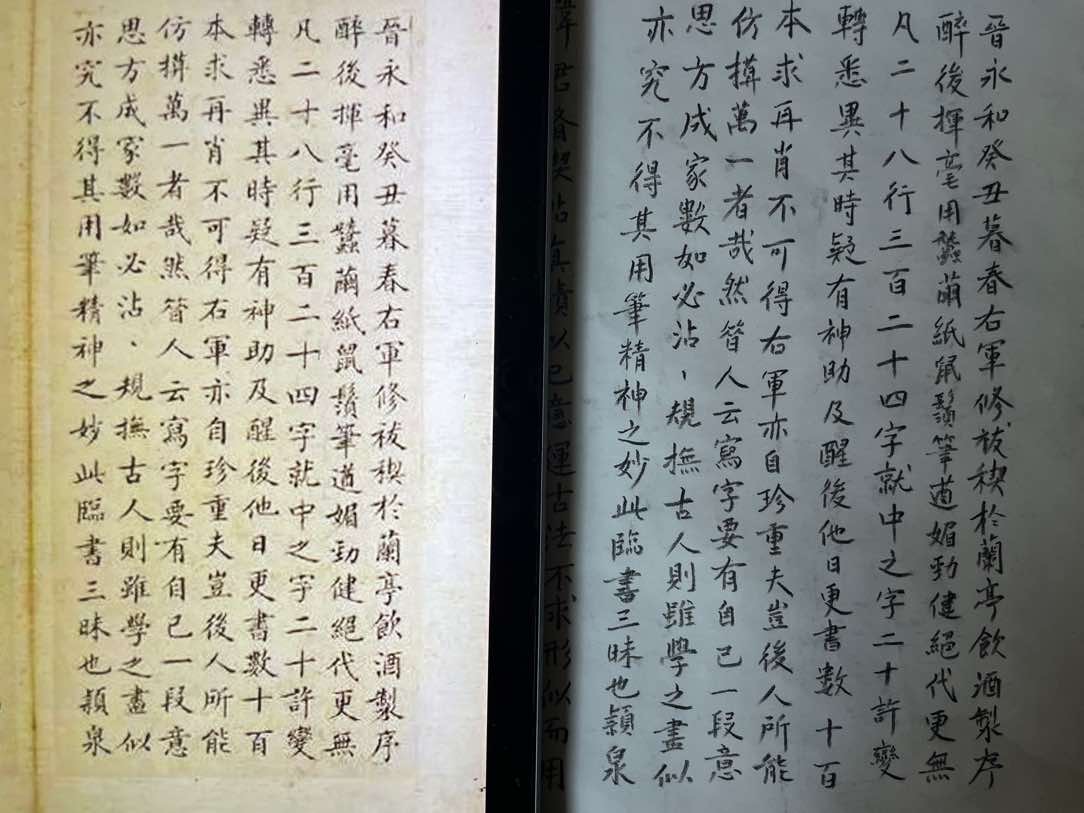 晉永和癸丑暮春右軍修祓禊於蘭亭飲酒製序
醉後揮毫用蠶繭紙鼠鬚筆遒媚勁健絕代更無
凡二十八行三百二十四字就中之字二十許變
轉悉異其時疑有神助及醒後他日更書數十百
本求再肖不可得右軍亦自珍重夫豈後人所能
仿摸萬一者哉然昝人云寫字要有自己一段意
思方成家數如必沾、規撫古人則雖學之盡似
亦究不得其用筆精神之妙此臨書三昧也穎泉
晉永和癸丑暮春右軍修祓禊於蘭亭飲酒製序
醉後揮毫用蠶繭紙鼠鬚筆遒媚勁健絕代更無
凡二十八行三百二十四字就中之字二十許變
轉悉異其時疑有神助及醒後他日更書數十百
本求再肖不可得右軍亦自珍重夫豈後人所能
仿摸萬一者哉然昝人云寫字要有自己一段意
思方成家數如必沾、規撫古人則雖學之盡似
亦究不得其用筆精神之妙此臨書三昧也穎泉
君禊帖真蹟以己意運古法不求形似而用